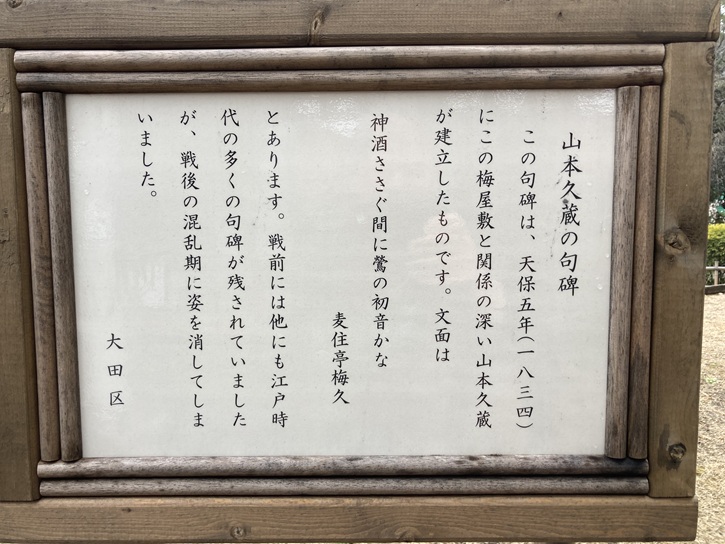 山本久蔵の句碑
この句碑は、天保五年(一八三四)
にこの梅屋敷と関係の深い山本久蔵
が建立したものです。文面は
神酒ささぐ間に鶯の初音かな
麦住亭梅久
とあります。戦前には他にも江戸時
代の多くの句碑が残されていました
が、戦後の混乱期に姿を消してしま
いました。
大田区